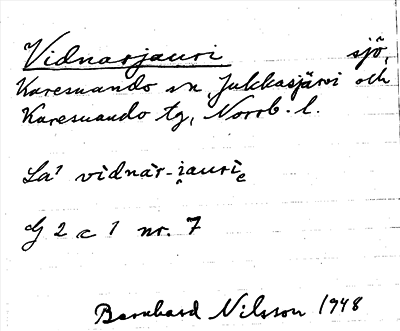 Vidnarjauri sjö,
Karesuando sn, Jukkasjärvi och
Karesuando tg, Norrb. l.
La¹ vidnàr-jaurie
G 2 c 1 nr. 7
Bernhard Nilsson 1948